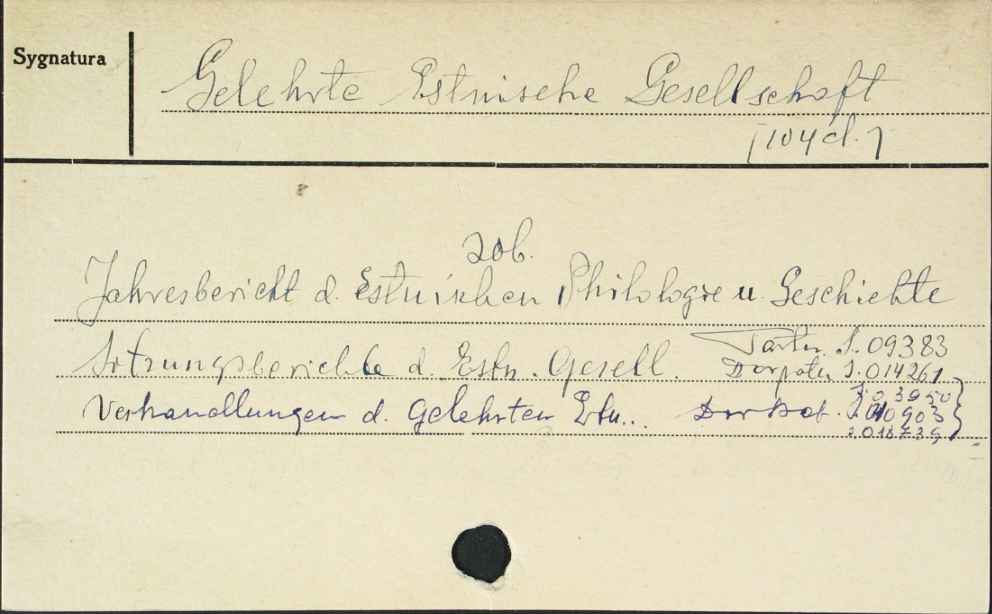 Sygnatura
Gelehrte Estnische Gesellschaft
[104 cl.]
zob.
Jahresbericht d. Estnischen Philologie u. Geschichte
Sitzungsberichte d. Estn. Gesell. Tartu J. 09383
Dorpater J. 014261
Verhandlungen d. Gelehrten Estn.. Dorpat. J. 03950
J. 010903
J. 018739